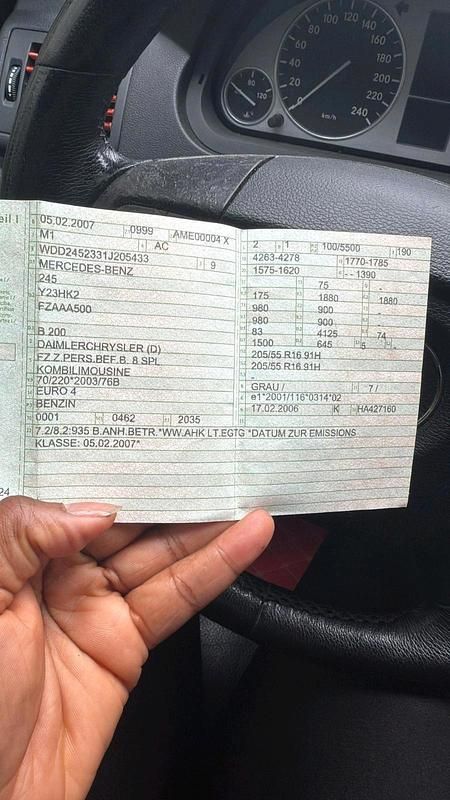 eil I
05.02.2007 0999 AME00004 X
M1 AC
WDD2452331J205433 9
MERCEDES-BENZ
245
Y23HK2
FZAAA500
B 200
DAIMLERCHRYSLER (D)
FZ.Z.PERS.BEF.B. 8 SPL
KOMBILIMOUSINE
70/220*2003/76B
EURO 4
BENZIN
0001 0462 2035
7.2/8.2:935 B.ANH.BETR.*WW.AHK LT.EGTG *DATUM ZUR EMISSIONS
KLASSE: 05.02.2007*
2 1 100/5500 190
4263-4278 1770-1785
1575-1620 - - 1390
75 -
175 1880 1880
980 900
980 900
83 4125 74
1500 645 5 -
205/55 R16 91H
205/55 R16 91H
-
GRAU / 7 /
e1*2001/116*0314*02
17.02.2006 K HA427160
24
0 20 40 60 80 100 120 140 160 180 200 220 240
km/h
80 120